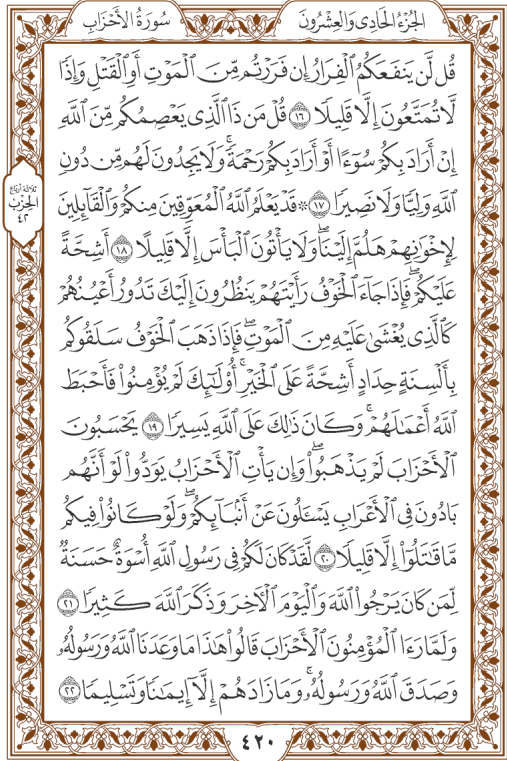 سُورَةُ الأَحْزَابِ
الجُزْءُ الحَادِي وَالعِشْرُونَ
قُل لَّن يَنفَعَكُمُ ٱلْفِرَارُ إِن فَرَرْتُم مِّنَ ٱلْمَوْتِ أَوِ ٱلْقَتْلِ وَإِذًا
لَّا تُمَتَّعُونَ إِلَّا قَلِيلًا ١٦ قُلْ مَن ذَا ٱلَّذِى يَعْصِمُكُم مِّنَ ٱللَّهِ
إِنْ أَرَادَ بِكُمْ سُوٓءًا أَوْ أَرَادَ بِكُمْ رَحْمَةً ۚ وَلَا يَجِدُونَ لَهُم مِّن دُونِ
ٱللَّهِ وَلِيًّا وَلَا نَصِيرًا ١٧ ۞ قَدْ يَعْلَمُ ٱللَّهُ ٱلْمُعَوِّقِينَ مِنكُمْ وَٱلْقَآئِلِينَ
لِإِخْوَٰنِهِمْ هَلُمَّ إِلَيْنَا ۖ وَلَا يَأْتُونَ ٱلْبَأْسَ إِلَّا قَلِيلًا ١٨ أَشِحَّةً
عَلَيْكُمْ ۖ فَإِذَا جَآءَ ٱلْخَوْفُ رَأَيْتَهُمْ يَنظُرُونَ إِلَيْكَ تَدُورُ أَعْيُنُهُمْ
كَٱلَّذِى يُغْشَىٰ عَلَيْهِ مِنَ ٱلْمَوْتِ ۖ فَإِذَا ذَهَبَ ٱلْخَوْفُ سَلَقُوكُم
بِأَلْسِنَةٍ حِدَادٍ أَشِحَّةً عَلَى ٱلْخَيْرِ ۚ أُو۟لَٰٓئِكَ لَمْ يُؤْمِنُوا۟ فَأَحْبَطَ
ٱللَّهُ أَعْمَٰلَهُمْ ۚ وَكَانَ ذَٰلِكَ عَلَى ٱللَّهِ يَسِيرًا ١٩ يَحْسَبُونَ
ٱلْأَحْزَابَ لَمْ يَذْهَبُوا۟ ۖ وَإِن يَأْتِ ٱلْأَحْزَابُ يَوَدُّوا۟ لَوْ أَنَّهُم
بَادُونَ فِى ٱلْأَعْرَابِ يَسْـَٔلُونَ عَنْ أَنۢبَآئِكُمْ ۖ وَلَوْ كَانُوا۟ فِيكُم
مَّا قَٰتَلُوٓا۟ إِلَّا قَلِيلًا ٢٠ لَّقَدْ كَانَ لَكُمْ فِى رَسُولِ ٱللَّهِ أُسْوَةٌ حَسَنَةٌ
لِّمَن كَانَ يَرْجُوا۟ ٱللَّهَ وَٱلْيَوْمَ ٱلْـَٔاخِرَ وَذَكَرَ ٱللَّهَ كَثِيرًا ٢١
وَلَمَّا رَءَا ٱلْمُؤْمِنُونَ ٱلْأَحْزَابَ قَالُوا۟ هَٰذَا مَا وَعَدَنَا ٱللَّهُ وَرَسُولُهُۥ
وَصَدَقَ ٱللَّهُ وَرَسُولُهُۥ ۚ وَمَا زَادَهُمْ إِلَّآ إِيمَٰنًا وَتَسْلِيمًا ٢٢
ثلاثة أرباع
الحزب
٤٢
٤٢٠